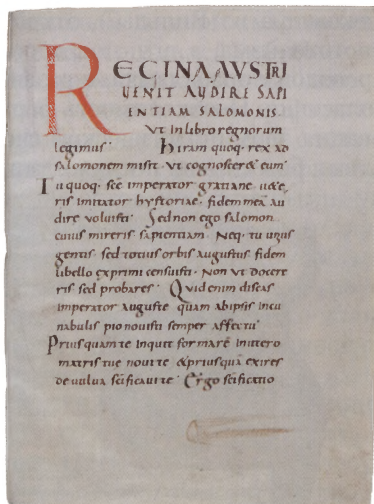 REGINA AVSTRI
UENIT AUDIRE SAPI
ENTIAM SALOMONIS.
Vt In libro regnorum
legimus. hiram quoq. rex ad
salomonem misit. Vt cognosceret eum
Tu quoq. sce imperator gratiane. uete
ris imitator hystoriae. fidem mea au
dire voluisti. Sed non ego salomon
cuius mireris sapientiam. Neq. tu unius
gentis sed totius orbis augustus fidem
libello exprimi censuisti. Non ut docere
ris sed probares. Quid enim discas
imperator auguste quam abipsis incu
nabulis pio nouisti semper affectu
Priusquam te inquit formare inutero
matris tue noui te & priusqua exires
de uulua scificaui te. Ergo scificatio